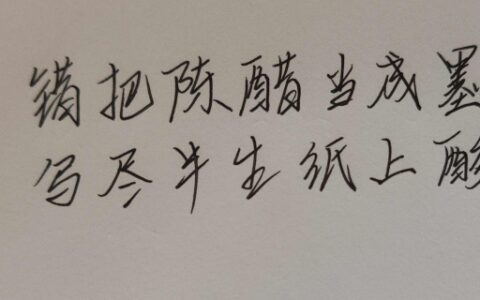 错把陈醋当成墨
写尽半生纸上酸